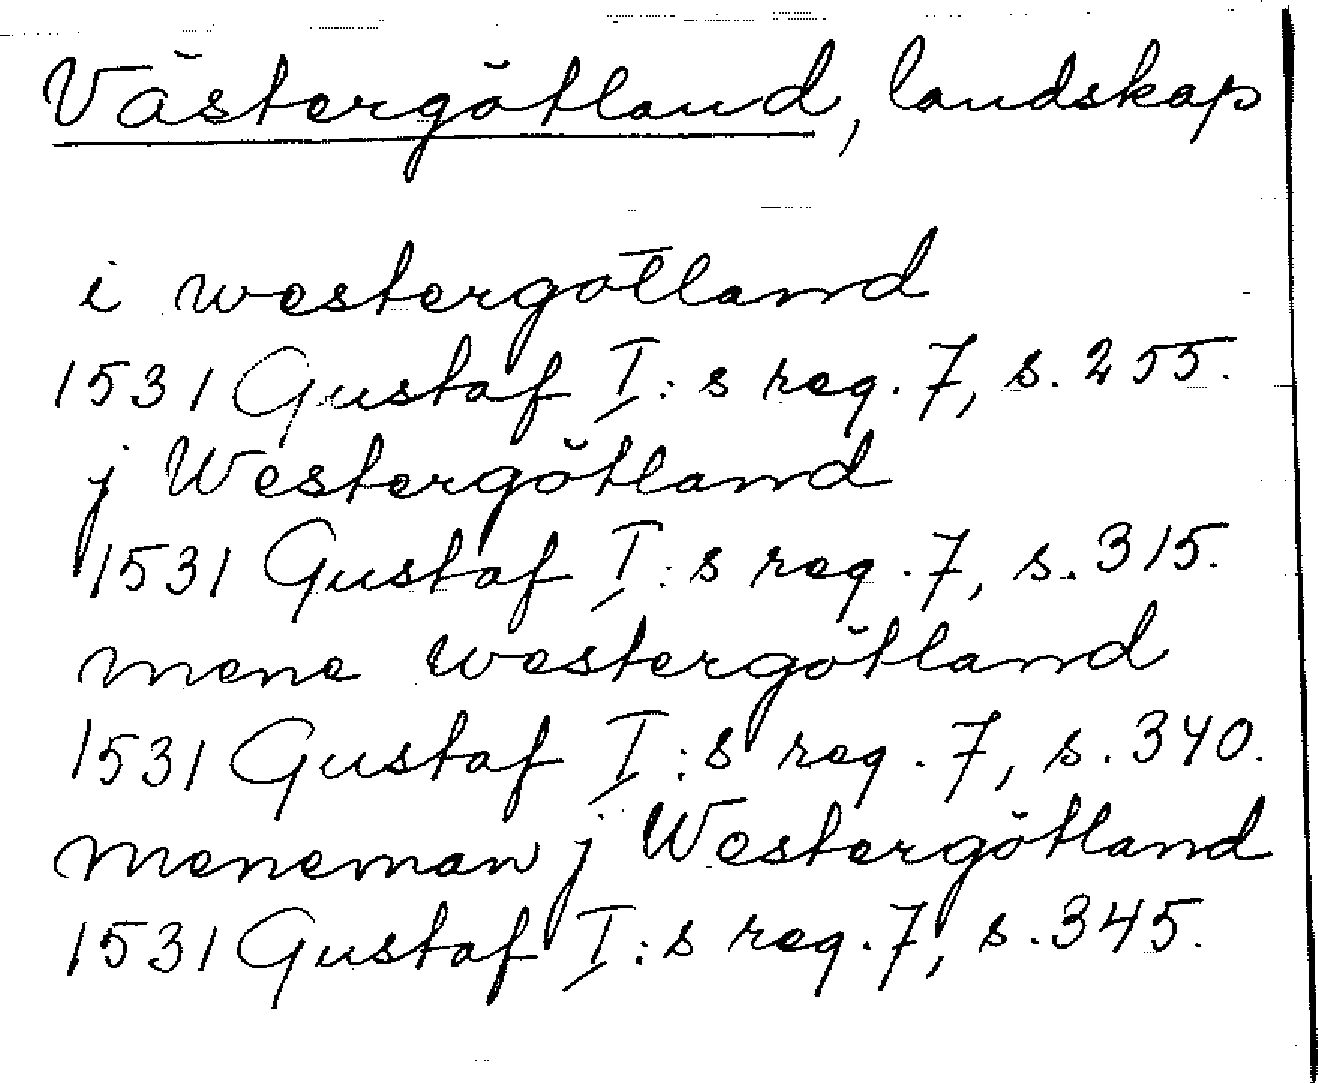 Västergötland, landskap
i westergötland
1531 Gustaf I:s reg. 7, s. 255.
j Westergötland
1531 Gustaf I:s reg. 7, s. 315.
mene westergötland
1531 Gustaf I:s reg. 7, s. 340.
meneman j Westergötland
1531 Gustaf I:s reg. 7, s. 345.